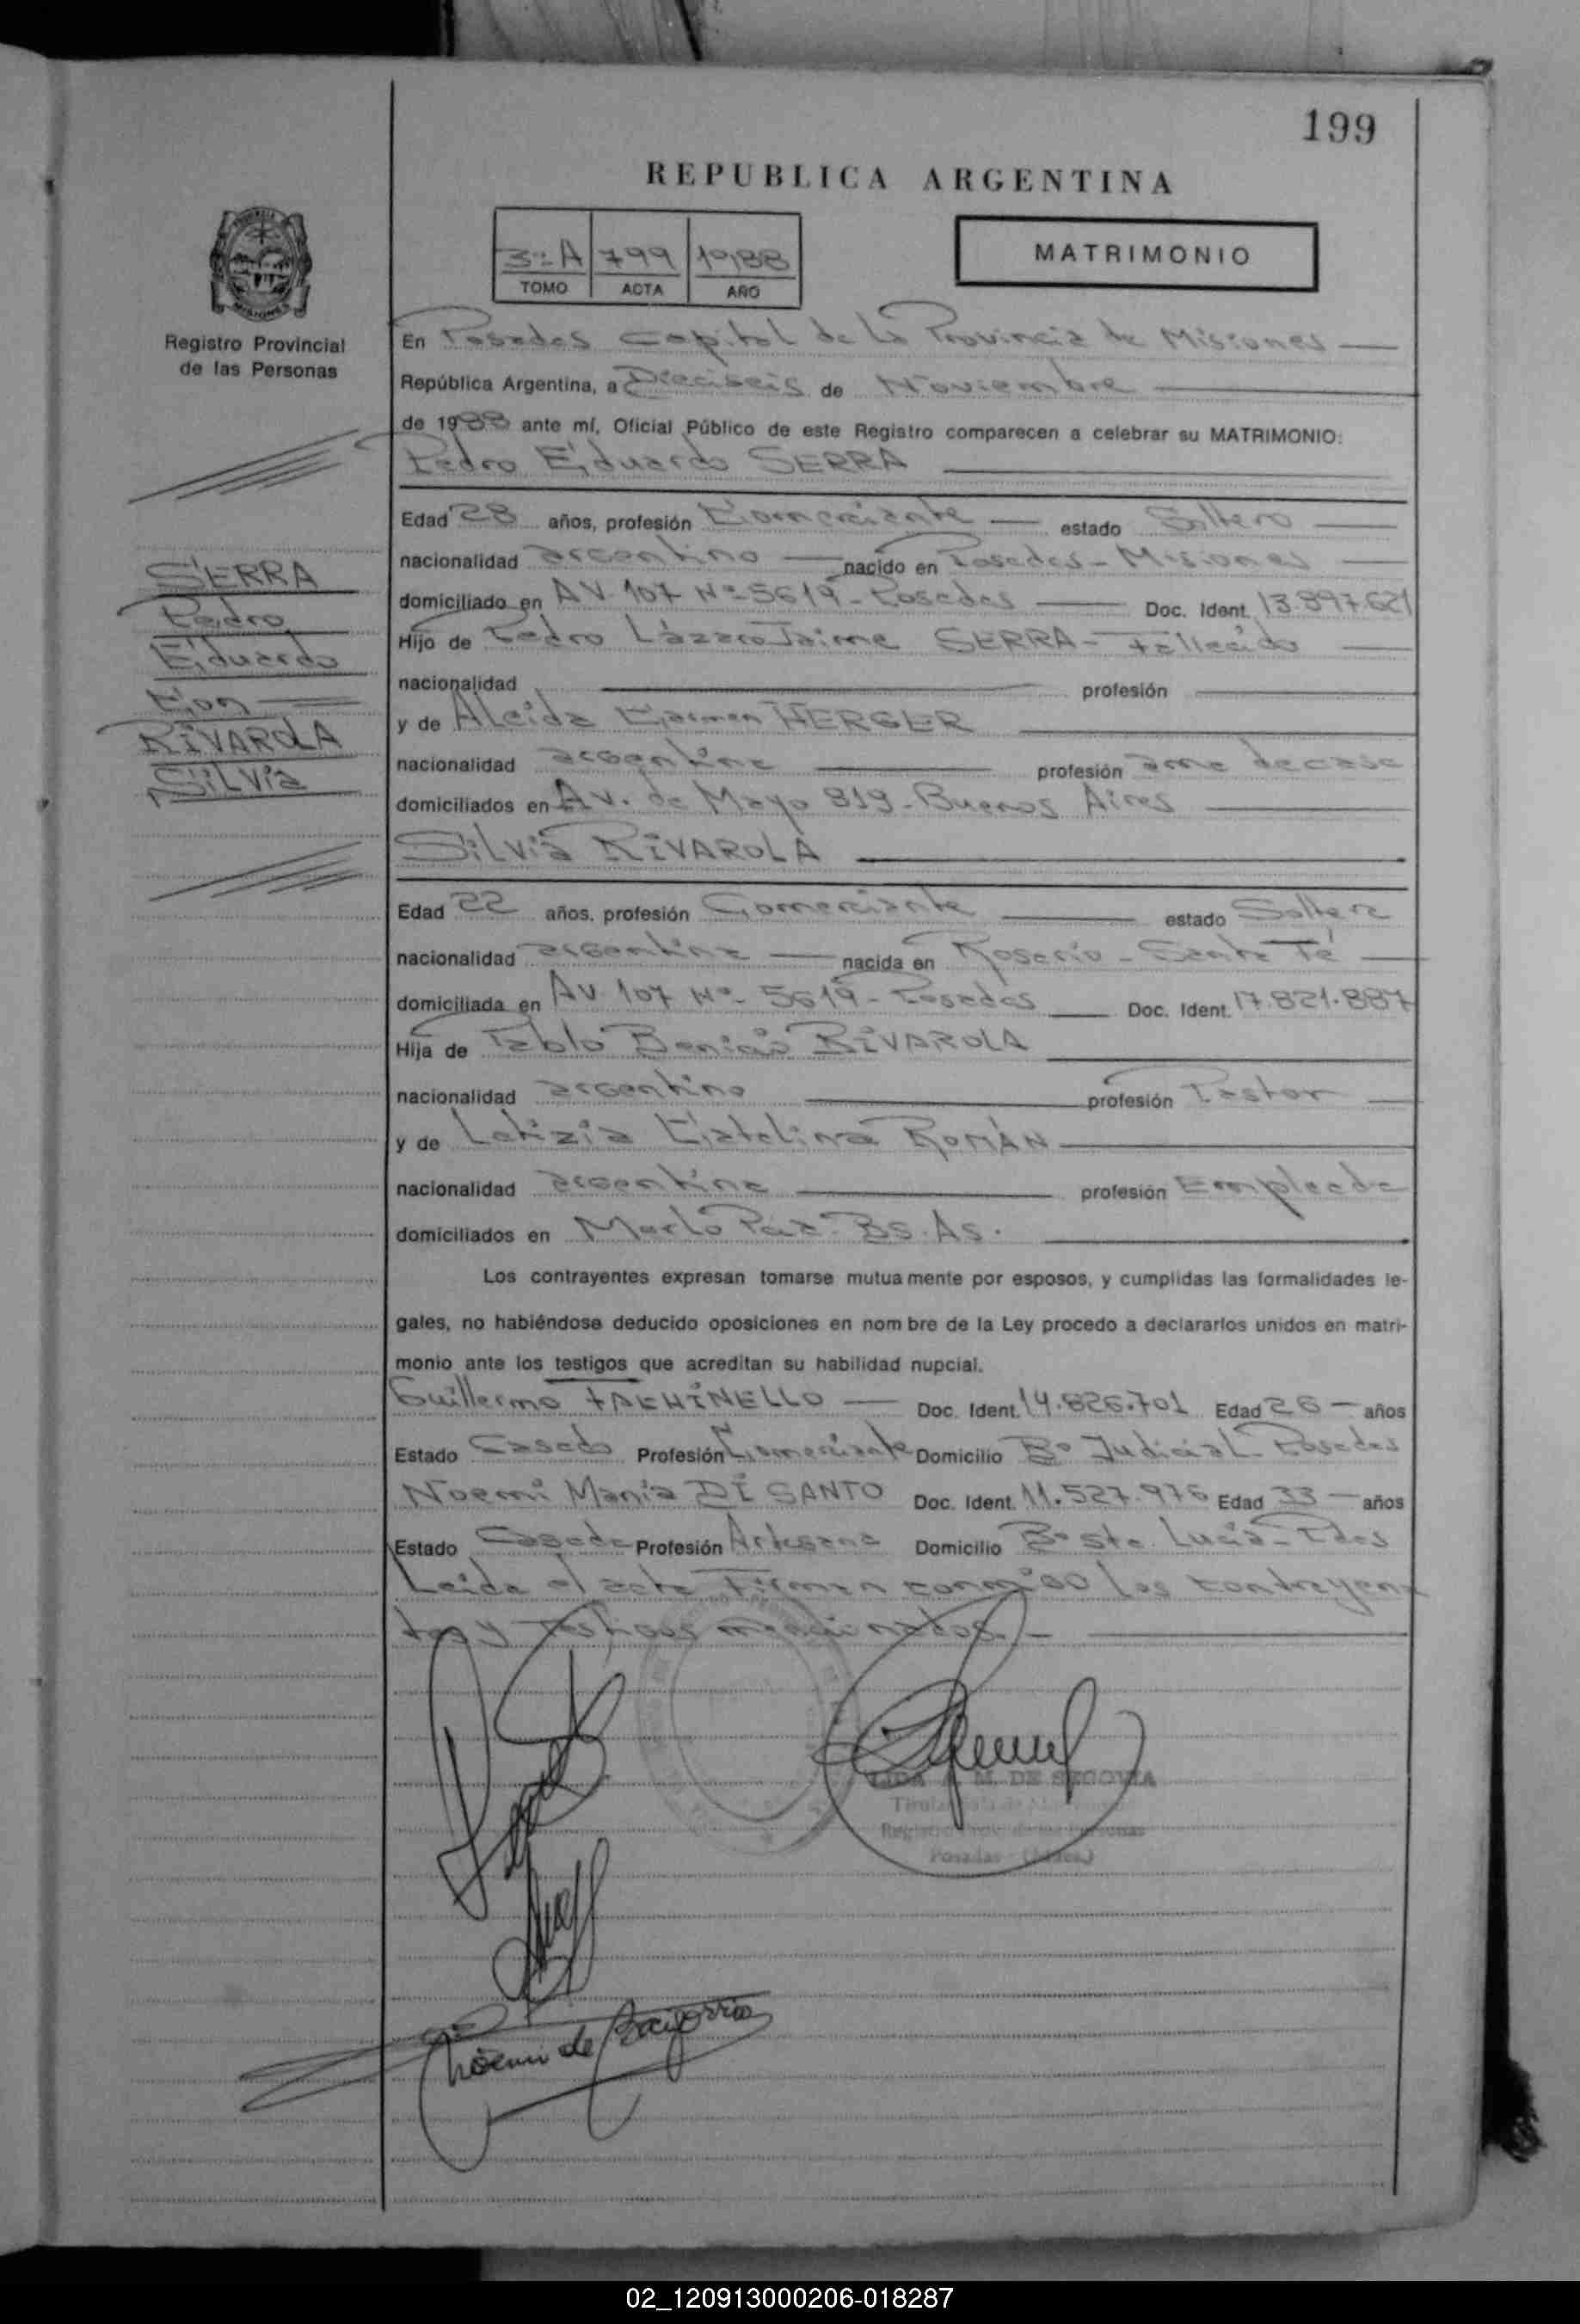 199
REPUBLICA ARGENTINA
3º A 799 1988
TOMO ACTA AÑO
MATRIMONIO
Registro Provincial
de las Personas
En Posadas Capital de la Provincia de Misiones
República Argentina, a Dieciseis de Noviembre
de 1988 ante mí, Oficial Público de este Registro comparecen a celebrar su MATRIMONIO:
Pedro Eduardo SERRA
Edad 28 años, profesión Comerciante estado Soltero
nacionalidad argentino nacido en Posadas - Misiones
domiciliado en AV. 107 Nº 5619 - Posadas Doc. Ident. 13.897.621
Hijo de Pedro Lázaro Jaime SERRA - Fallecido
nacionalidad profesión
y de Alcida Carmen HERGER
nacionalidad argentina profesión ama de casa
domiciliados en Av. de Mayo 819 - Buenos Aires
Silvia RIVAROLA
Edad 22 años, profesión Comerciante estado Soltera
nacionalidad argentina nacida en Rosario - Santa Fé
domiciliada en AV. 107 Nº 5619 - Posadas Doc. Ident. 17.821.887
Hija de Pablo Benicio RIVAROLA
nacionalidad argentino profesión Pastor
y de Letizia Catalina ROMÁN
nacionalidad argentina profesión Empleada
domiciliados en Merlo Paz - Bs. As.
Los contrayentes expresan tomarse mutuamente por esposos, y cumplidas las formalidades le-
gales, no habiéndose deducido oposiciones en nombre de la Ley procedo a declararlos unidos en matri-
monio ante los testigos que acreditan su habilidad nupcial.
Guillermo Doc. Ident. 14.826.701 Edad 26 años
Estado Casado Profesión Comerciante Domicilio Bº Judicial - Posadas
Noemi María DI SANTO Doc. Ident. 11.527.976 Edad 33 años
Estado Casada Profesión Artesana Domicilio Bº Sta. Lucía - Pdas
Leida el acta Firman conmigo los contrayen
tes y testigos mencionados.-
SERRA
Pedro
Eduardo
Con
RIVAROLA
Silvia
LIDA A. M. DE SEGOVIA
Registro Prov. de las Personas
Posadas (Mnes.)
Noemi de Baigorria
02_120913000206-018287